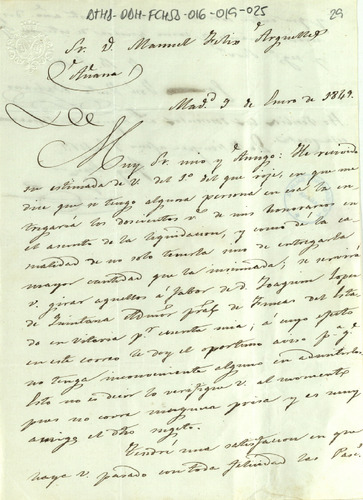 ATHA-DDH-FCHSD-016-019-025
29
Sr. D. Manuel Felix Arguelles
Añana
Mad.d 9 de Enero de 1849.
Muy Sr. mio y Amigo: He recivido
su estimada de V. del 1º del que rije, en que me
dice que si tengo alguna persona en esa la en
tregará los doscientos r.s de sus honorarios en
el asunto de la liquidacion, y como dé la ca
sualidad de no solo tenerla sino de entregarla
mayor cantidad que la mencionada, se servirá
V. girar aquellos á favor de D. Joaquin Lopez
de Quintana Admor pral de Fincas del Esta
do en Vitoria p.r cuenta mia; á cuyo efecto
en este correo le doy el oportuno aviso p.a q.e
no tenga inconveniente alguno en admitirlos.
Esto no es decir lo verifique V. al momento
pues no corre ninguna prisa y es muy
amigo el dho sugeto.
Tendré una satisfaccion en que
haya V. pasado con toda felicidad las Pasc.